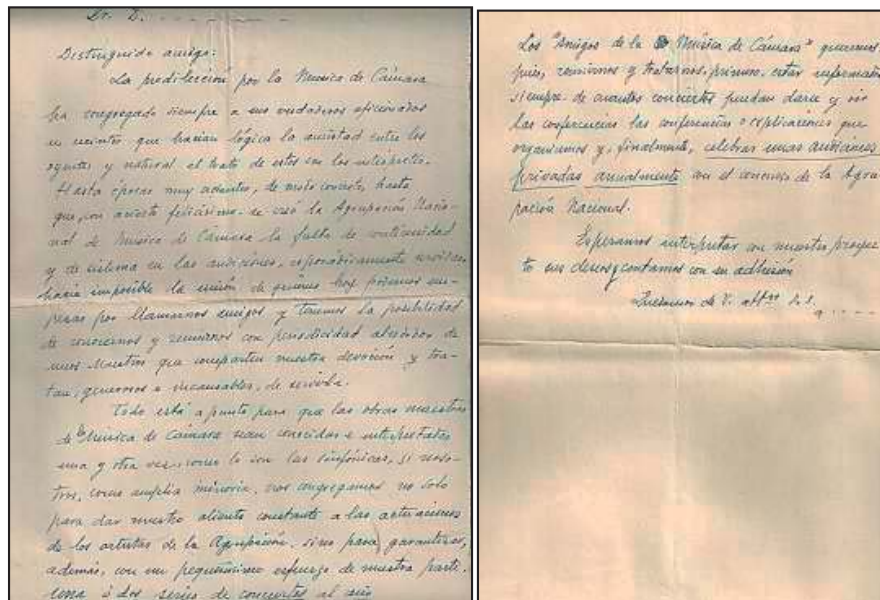 Sr. D. - - - - - - - -
Distinguido amigo:
La predilección por la Musica de Cámara
ha congregado siempre a sus verdaderos aficionados
en recintos que hacían lógica la amistad entre los
oyentes y natural el trato de estos con los intérpretes.
Hasta épocas muy recientes, de modo concreto, hasta
que, con acierto felicísimo, se creó la Agrupación Nacio-
nal de Musica de Cámara la falta de continuidad
y de sistema en las audiciones, esporádicamente
hacía imposible la unión de quienes hoy podemos em-
pezar por llamarnos amigos, y tenemos la posibilidad
de conocernos y reunirnos con periodicidad alrededor de
unos Maestros que comparten nuestra devoción y tra-
tan, generosos e incansables, de servirla.
Todo está a punto para que las obras maestras
de la Música de Cámara sean conocidas e interpretadas
una y otra vez, como lo son las sinfónicas, si noso-
tros, como amplia minoría, nos congregamos no solo
para dar nuestro aliento constante a las actuaciones
de los artistas de la Agrupación, sino para garantizar,
además, con un pequeñísimo esfuerzo de nuestra parte,
una ó dos series de conciertos al año
Los "Amigos de la Música de Cámara" queremos,
pues, reunirnos y tratarnos, primero, estar informados
siempre de cuantos conciertos puedan darse y oir
las conferencias las conferencias o explicaciones que
organicemos y, finalmente, celebrar unas audiciones
privadas anualmente con el concurso de la Agru-
pación Nacional.
Esperamos interpretar con nuestro proyec-
to sus deseos y contamos con su adhesión
Quedamos de V. affmos s.s.